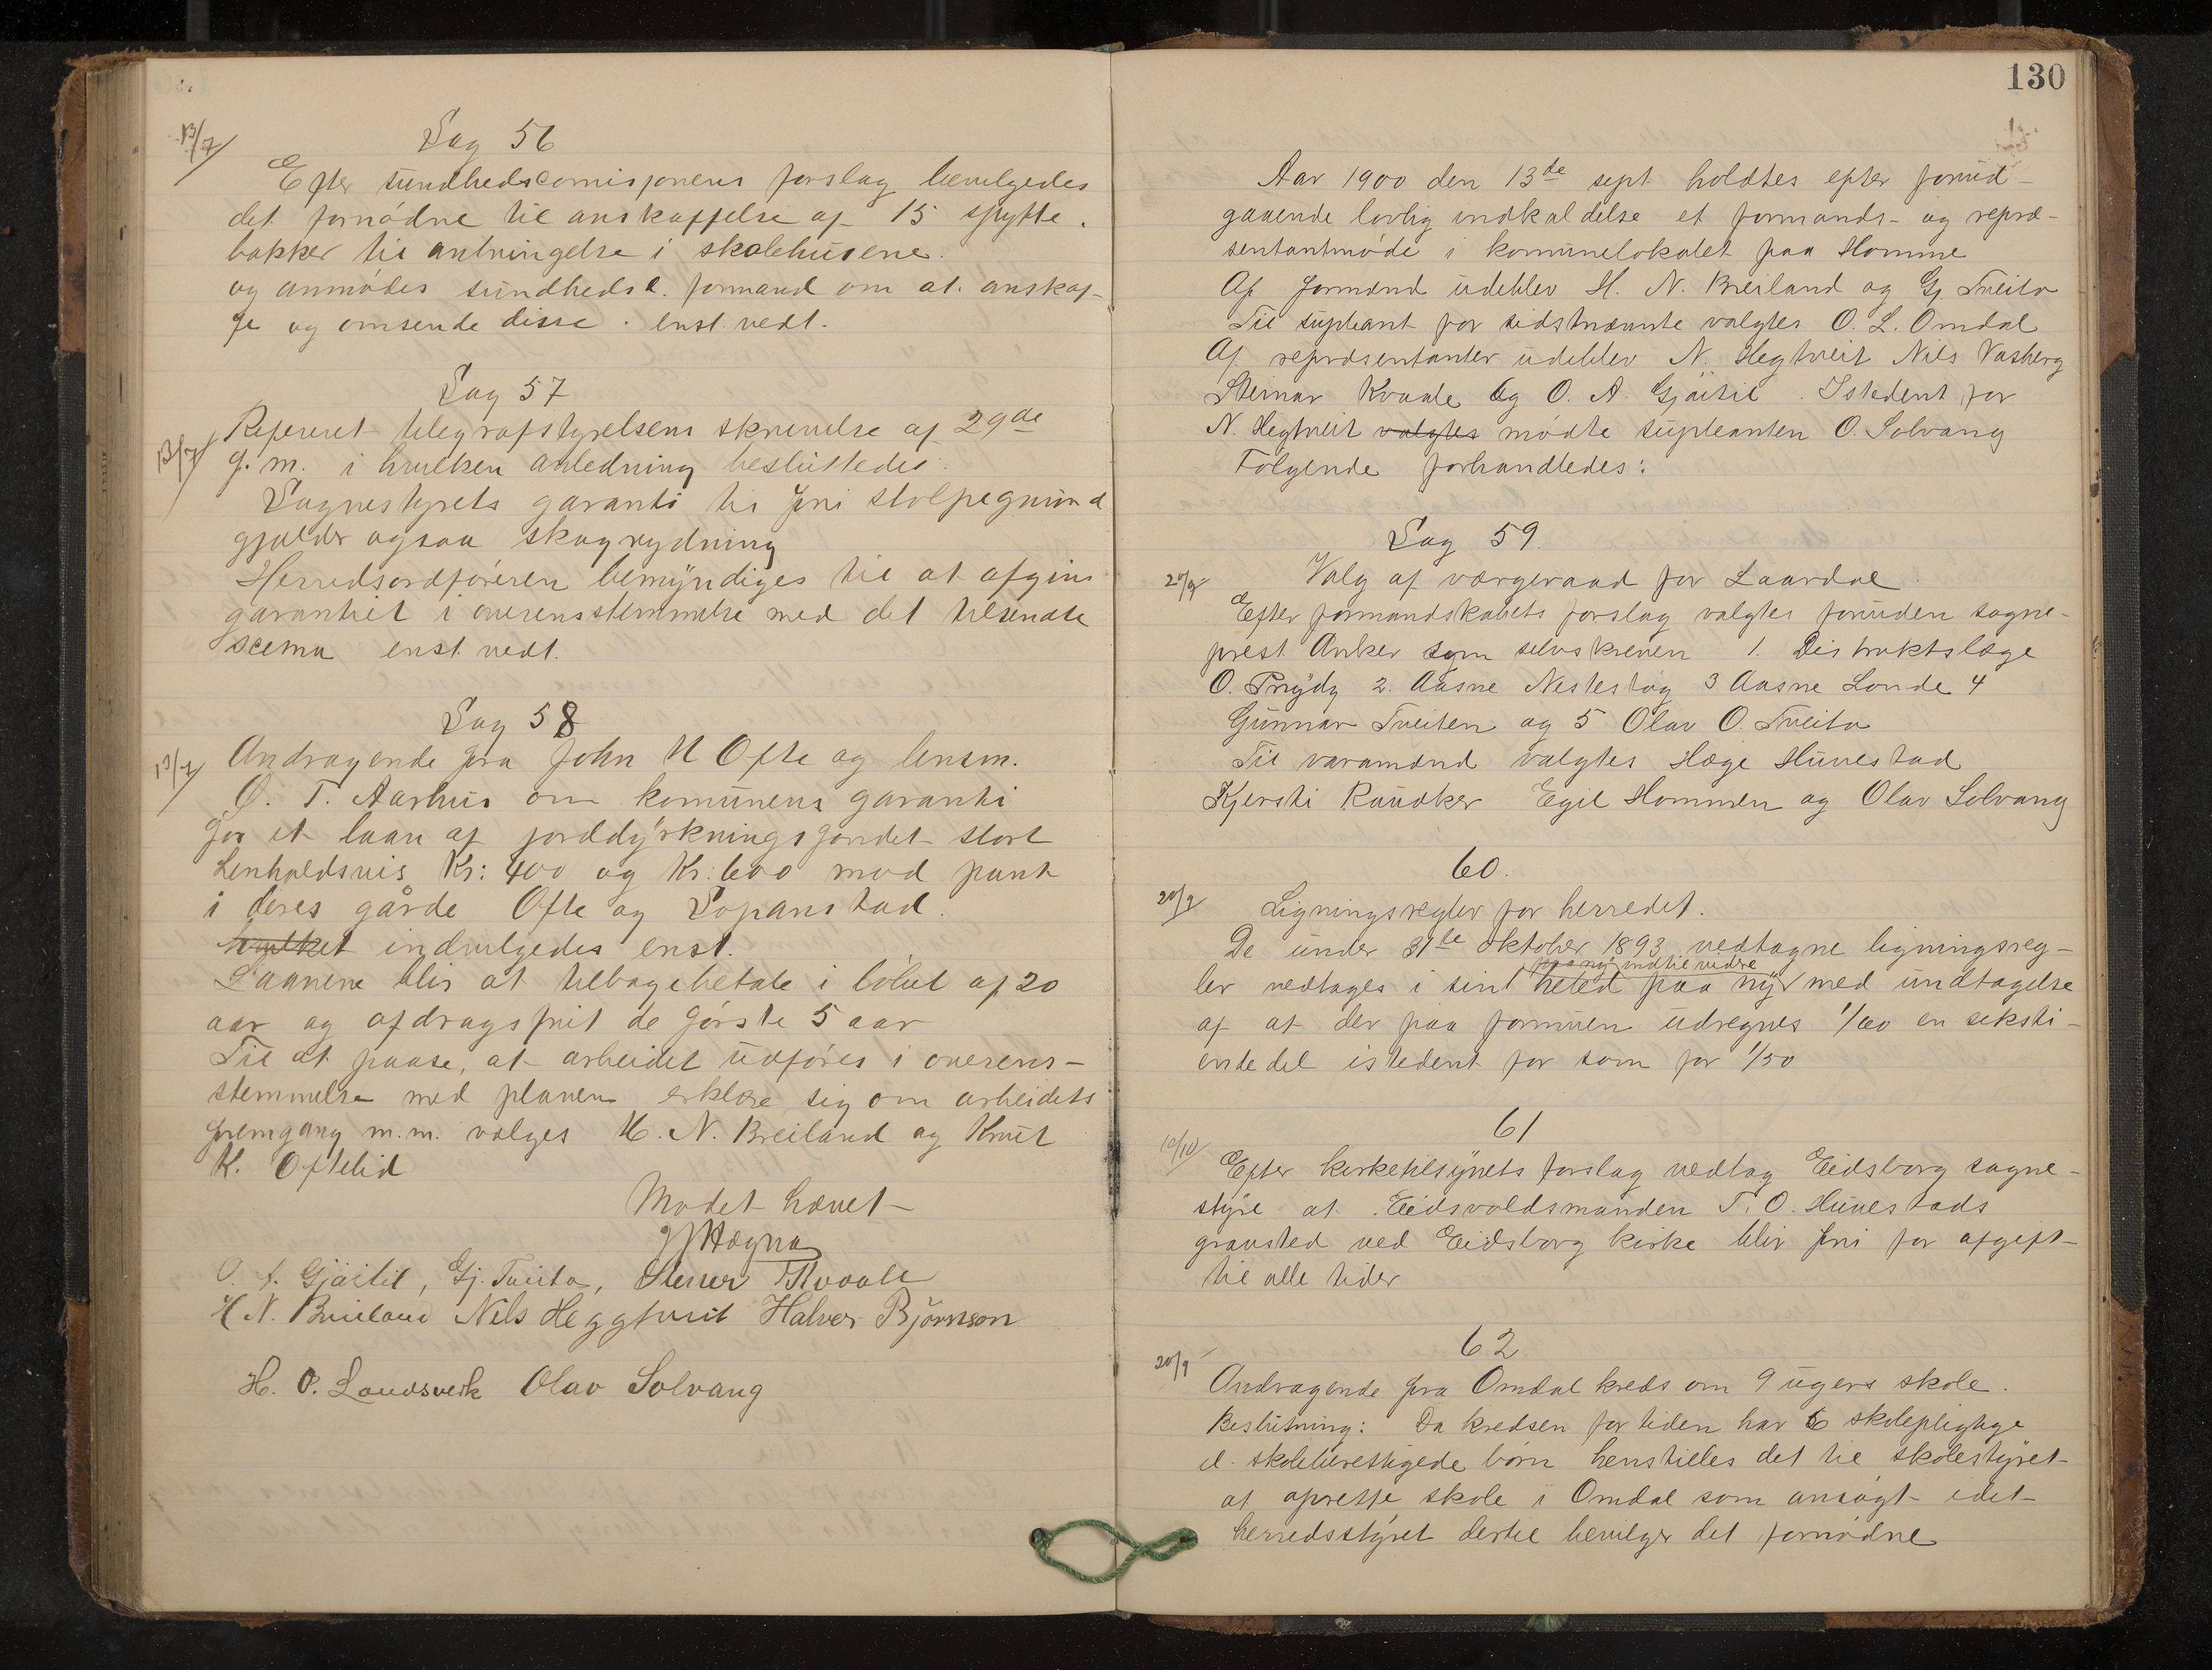 13/7
Sag 56
Efter sundhedscomisjonens forslag bevilgedes
det fornødne til anskaffelse af 15 spytte-
bakker til anbringelse i skolehusene.
og anmodes sundhedsk. formand om at anskaf-
fe og omsende disse. enst. vedt.
Sag 57
13/7
Refereret telegrafstyrelsens skrivelse af 29de
f.m. i hvilken anledning besluttedes:
Sognestyrets garanti til fri stolpegrund
gjælder ogsaa skogrydning
Herredsordføreren bemyndiges til at afgive
garantiet i overensstemmelse med det tilsendte
scema enst. vedt.
Sag 58
13/7
Andragende fra John N Ofte og lensm.
O. T. Aarhus om komunens garanti
for et laan af jorddyrkningsfondet stort
henholdsvis Kr: 400 og Kr: 600 mod pant
i deres gårde Ofte og Sopanstad.
hvilket indvilgedes enst.
Laanene blir at tilbagebetale i løbet af 20
aar og afdragsfrit de første 5 aar
Til at paase, at arbeidet udføres i overens-
stemmelse med planen erklære sig om arbeidets
fremgang m.m. vælges H. N. Breiland og Knut
K. Oftelid
Mødet hævet
Hægna
O. A. Gjøitil, Gj. Tveito, Stener Kvaale
H. N. Breiland Nils Heggtveit Halvor Bjørnson
H. O. Landsverk Olav Solvang
130
Aar 1900 den 13de sept holdtes efter forud-
gaaende lovlig indkaldelse et formands- og repræ-
sentantmøde i komunelokalet paa Homme
Af formænd udeblev H. N. Breiland og Gj. Tveito
Til supleant for sidstnævnte valgtes O. L. Omdal
Af repræsentanter udeblev N. Hegtveit Nils Vasberg
Steinar Kvaale og O. A. Gjøitil. Istedent for
N. Hegtveit valgtes mødte supleanten O. Solvang
Følgende forhandledes:
Sag 59.
20/9
Valg af værgeraad for Laardal.
Efter formandskabets forslag valgtes foruden sogne-
prest Anker som selvskreven 1. Distriktslæge
O. Prydz 2. Aasne Nestestog 3 Aasne Londe 4
Gunnar Tveiten og 5 Olav O. Tveito
Til varamænd valgtes Hæge Huvestad
Kjersti Raudker Egil Hommen og Olav Solvang
60.
20/9
Ligningsregler for herredet.
De under 31te oktober 1893 vedtagne ligningsreg-
paa ny indtil videre
ler vedtages i sin helhed paa ny med undtagelse
af at der paa formuen udregnes 1/60 en seksti-
endedel istedent for som før 1/50
61
10/10
Efter kirketilsynets forslag vedtog Eidsborg sogne-
styre at Eidsvoldsmanden T. O. Huvestads
gravsted ved Eidsborg kirke blir fri for afgift
til alle tider
62
20/9
Andragende fra Omdal kreds om 9 ugers skole.
Beslutning: Da kredsen for tiden har 6 skolepligtige
el. skoleberettigede børn henstilles det til skolestyret
at oprette skole i Omdal som ansøgt idet
herredsstyret dertil bevilger det fornødne